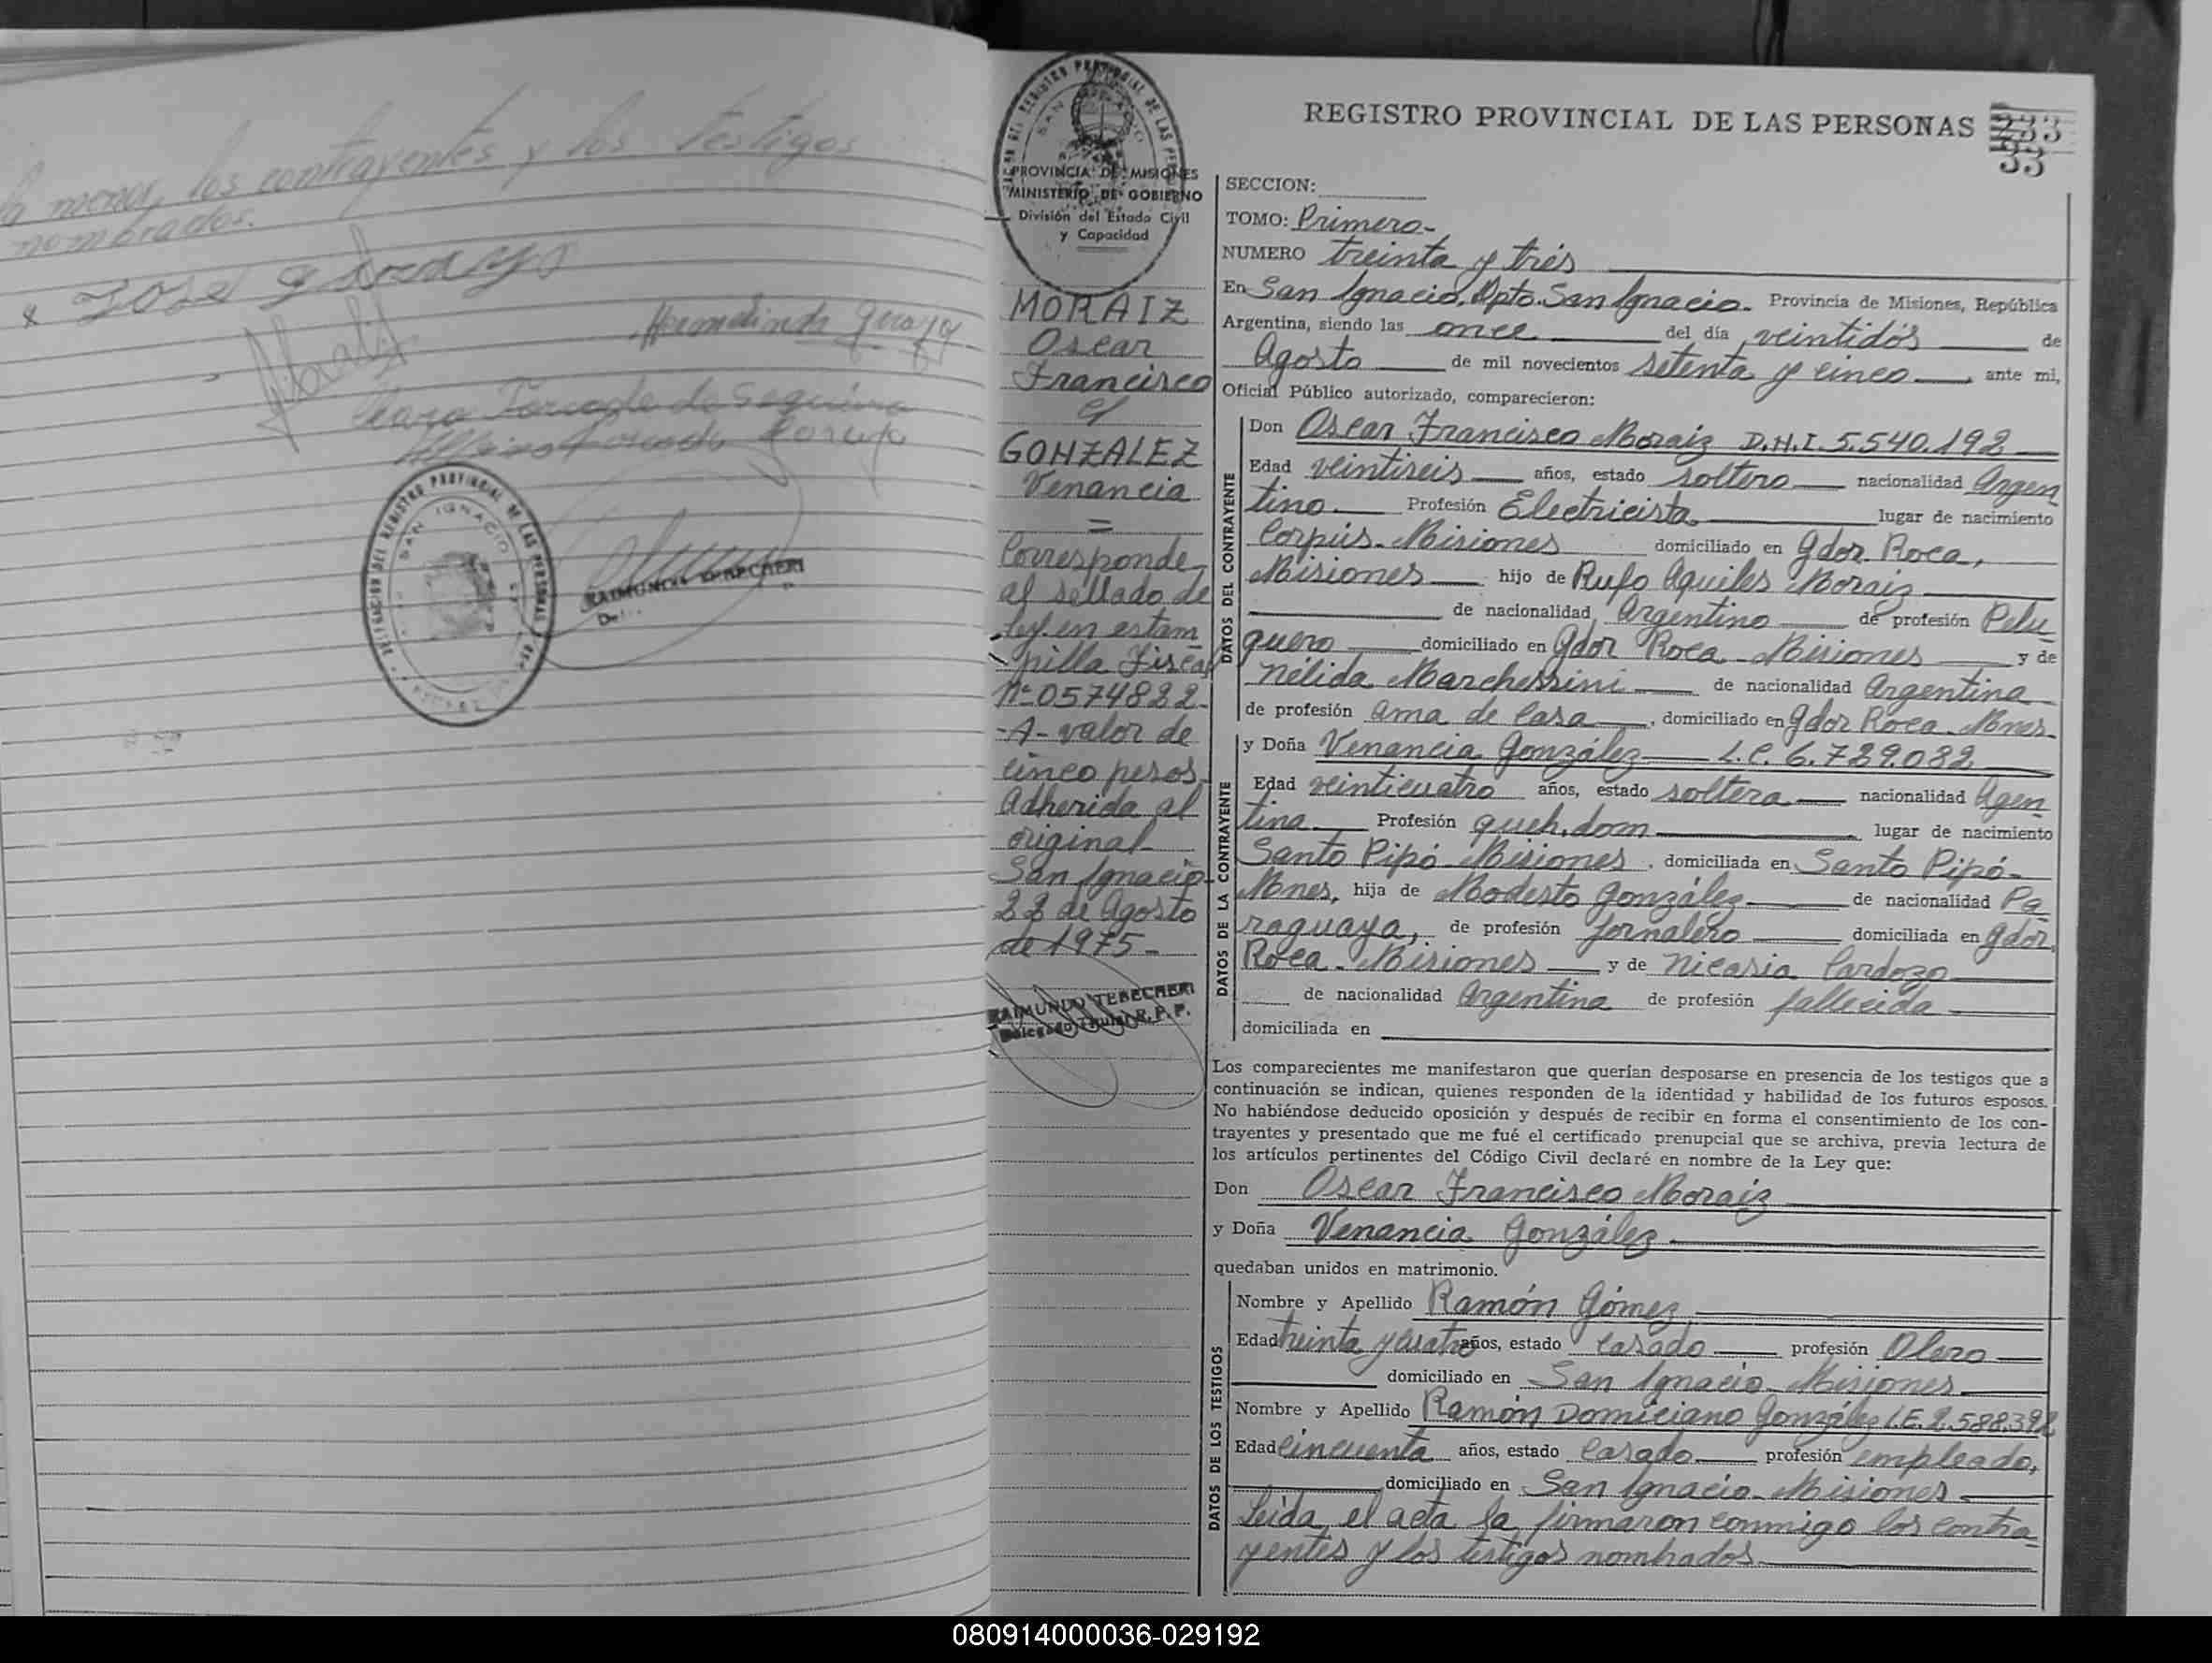 la menor, los contrayentes y los testigos
nombrados.
REGISTRO PROVINCIAL DE LAS PERSONAS
SAN IGNACIO
RAIMUNDO TEBECHERI
PROVINCIA DE MISIONES
MINISTERIO DE GOBIERNO
División del Estado Civil
y Capacidad
MORAIZ
Oscar
Francisco
y
GONZALEZ
Venancia
=
Corresponde
al sellado de
ley en estam
pilla Fiscal
Nº 0574822-
-A- valor de
cinco pesos
Adherida al
original
San Ignacio
22 de Agosto
de 1975-
RAIMUNDO TEBECHERI
Delegado Titular R. P. P.
REGISTRO PROVINCIAL DE LAS PERSONAS 233
33
SECCION:
TOMO: Primero-
NUMERO treinta y trés
En San Ignacio, Dpto. San Ignacio. Provincia de Misiones, República
Argentina, siendo las once del día veintidós de
Agosto de mil novecientos setenta y cinco, ante mi,
Oficial Público autorizado, comparecieron:
DATOS DEL CONTRAYENTE
Don Oscar Francisco Moraiz D.N.I. 5.540.192
Edad veintiseis años, estado soltero nacionalidad Argen
tino Profesión Electricista lugar de nacimiento
Corpus-Misiones domiciliado en Gdor. Roca,
Misiones hijo de Rufo Aquiles Moraiz
de nacionalidad Argentino de profesión Pelu
quero domiciliado en Gdor Roca-Misiones y de
Nélida Marchessini de nacionalidad Argentina
de profesión ama de casa, domiciliado en Gdor Roca-Mnes-
DATOS DE LA CONTRAYENTE
y Doña Venancia González L.C. 6.729.032
Edad veinticuatro años, estado soltera nacionalidad Agen
tina Profesión queh. dom lugar de nacimiento
Santo Pipó-Misiones, domiciliada en Santo Pipó-
Mnes, hija de Modesto González de nacionalidad Pa
raguaya, de profesión Jornalero domiciliada en Gdor
Roca-Misiones y de Nicasia Cardozo
de nacionalidad Argentina de profesión fallecida
domiciliada en
Los comparecientes me manifestaron que querían desposarse en presencia de los testigos que a
continuación se indican, quienes responden de la identidad y habilidad de los futuros esposos.
No habiéndose deducido oposición y después de recibir en forma el consentimiento de los con-
trayentes y presentado que me fué el certificado prenupcial que se archiva, previa lectura de
los artículos pertinentes del Código Civil declaré en nombre de la Ley que:
Don Oscar Francisco Moraiz
y Doña Venancia González
quedaban unidos en matrimonio.
DATOS DE LOS TESTIGOS
Nombre y Apellido Ramón Gómez
Edad treinta y cuatro años, estado casado profesión Olero
domiciliado en San Ignacio, Misiones
Nombre y Apellido Ramón Domiciano González L.E. 2.588.392
Edad cincuenta años, estado casado profesión empleado,
domiciliado en San Ignacio-Misiones
Leida el acta la firmaron conmigo los contra
yentes y los testigos nombrados
080914000036-029192